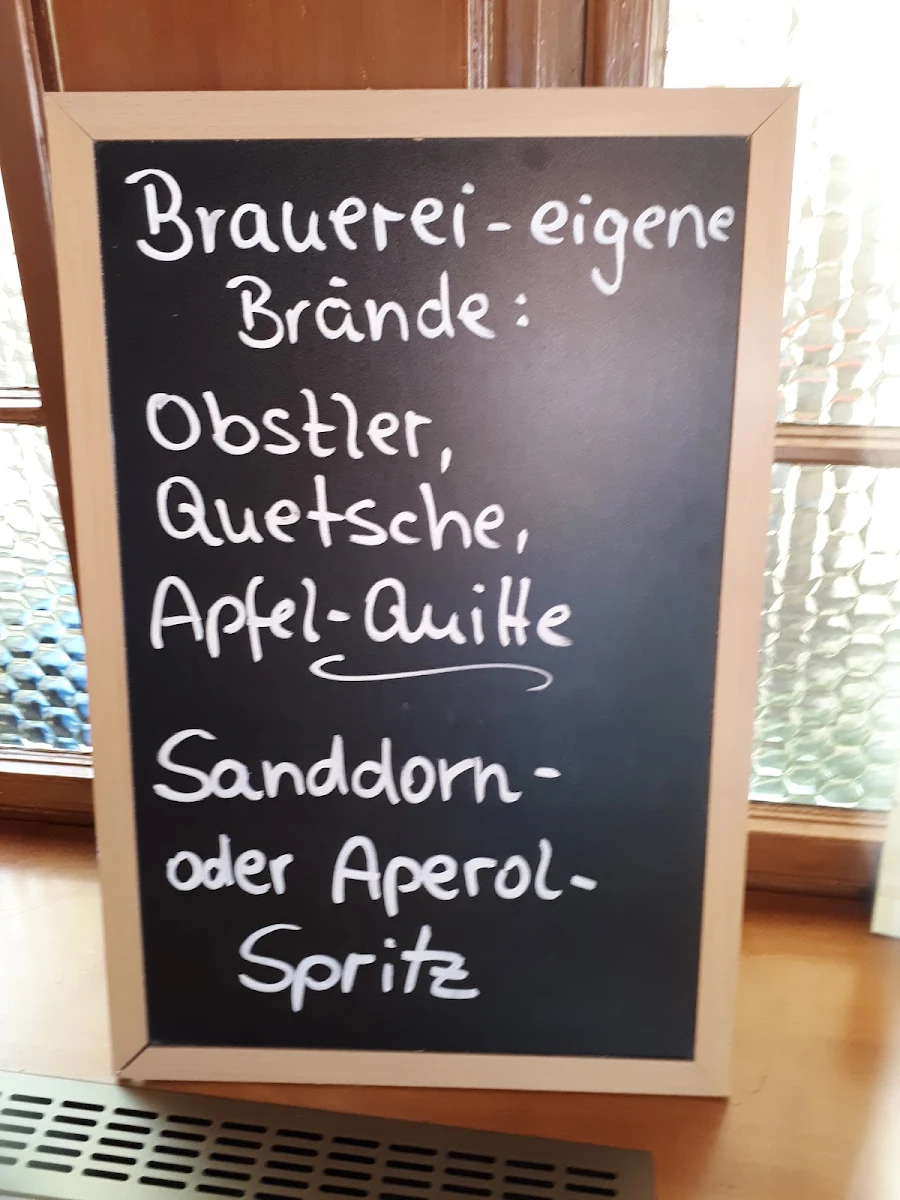 Brauerei-eigene
Brände:
Obstler,
Quetsche,
Apfel-Quitte
Sanddorn-
oder Aperol-
Spritz